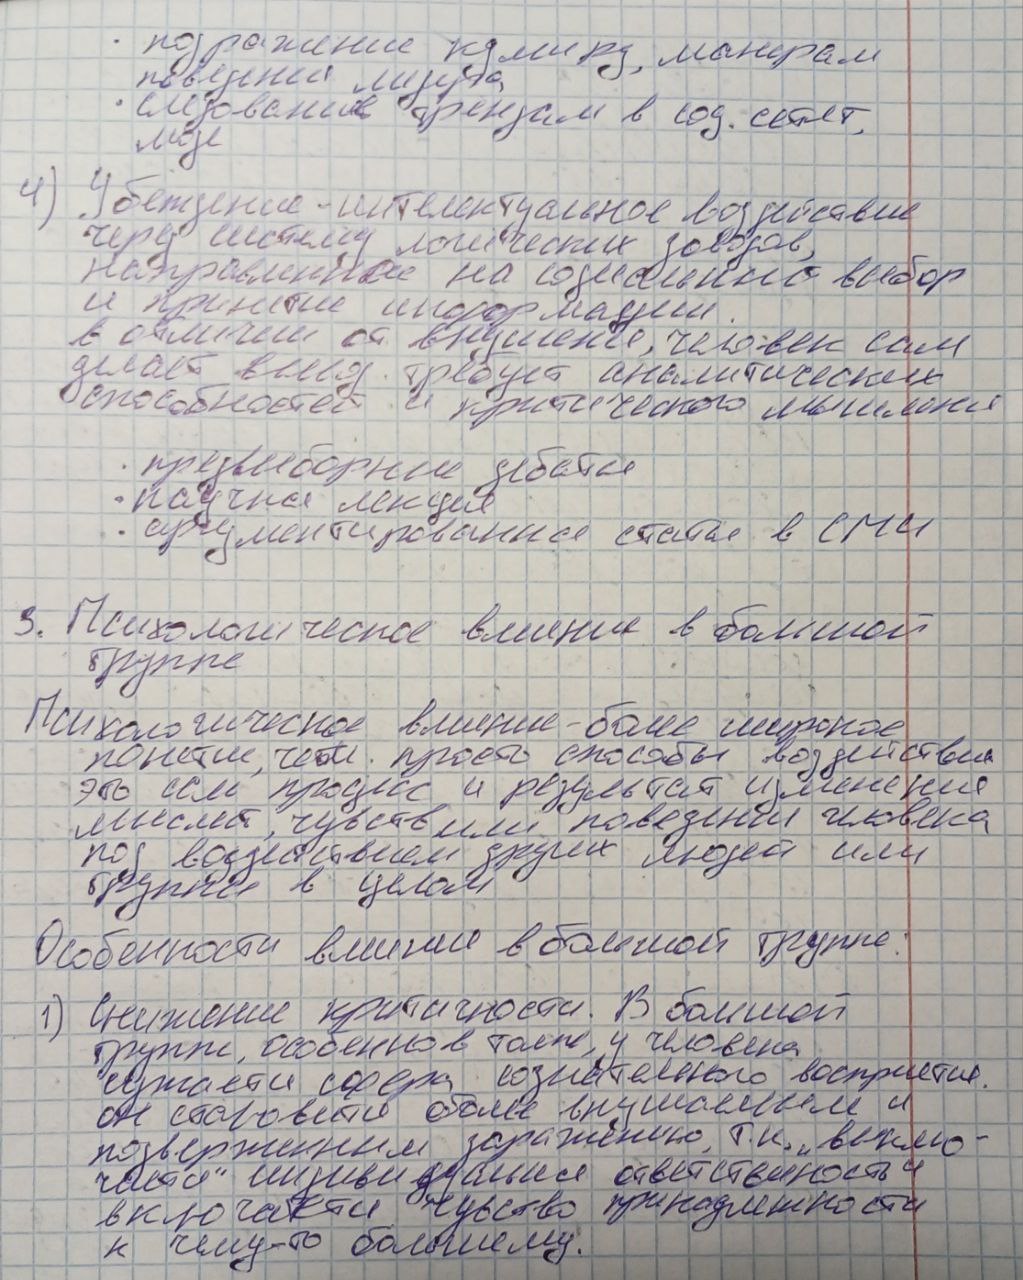 · подражение кумиру, манерам
поведения лидера
· следование трендам в соц. сетях,
моде
4) Убеждение - интелектуальное воздействие
через систему логических доводов,
направленное на сознательно выбор
и принятие информации.
в отличии от внушения, человек сам
делает вывод. требует аналитических
способностей и критического мышления
· предвыборные дебаты
· научная лекция
· аргументированная статья в СМИ
3. Психологическое влияние в большой
группе
Психологическое влияние - более широкое
понятие, чем просто способы воздействия
это сам процесс и результат изменения
мыслей, чувств или поведения человека
под воздействием других людей или
группы в целом
Особенности влияния в большой группе:
1) Снижение критичности. В большой
группе, особенно в толпе, у человека
сужается сфера сознательного восприятия.
он становится более внушаемым и
подверженным заражению, т.к. „выклю-
чается" индивидуальная ответственность и
включается чувство принадлежности
к чему-то большему.